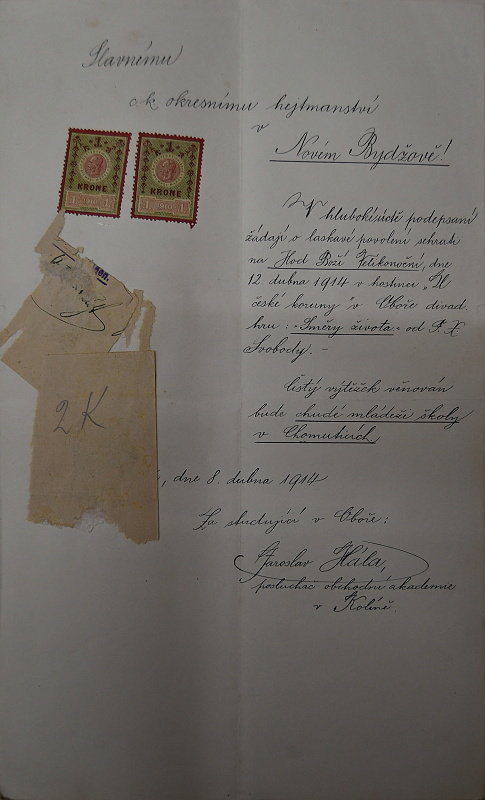 Slavnému
c.k. okresnímu hejtmanství
v
Novém Bydžově!
1
KRONE
1 1910 1
1
KRONE
1 1910 1
V hluboké úctě podepsaní
žádají o laskavé povolení sehrati
na Hod Boží Velikonoční, dne
12. dubna 1914 v hostinci „U
české koruny" v Oboře divad.
hru: „Směry života" od F. X.
Svobody. –
Čistý výtěžek věnován
bude chudé mládeži školy
v Chomuticích.
2K
, dne 8. dubna 1914
Za studující v Oboře:
Jaroslav Hála,
posluchač obchodní akademie
v Kolíně.